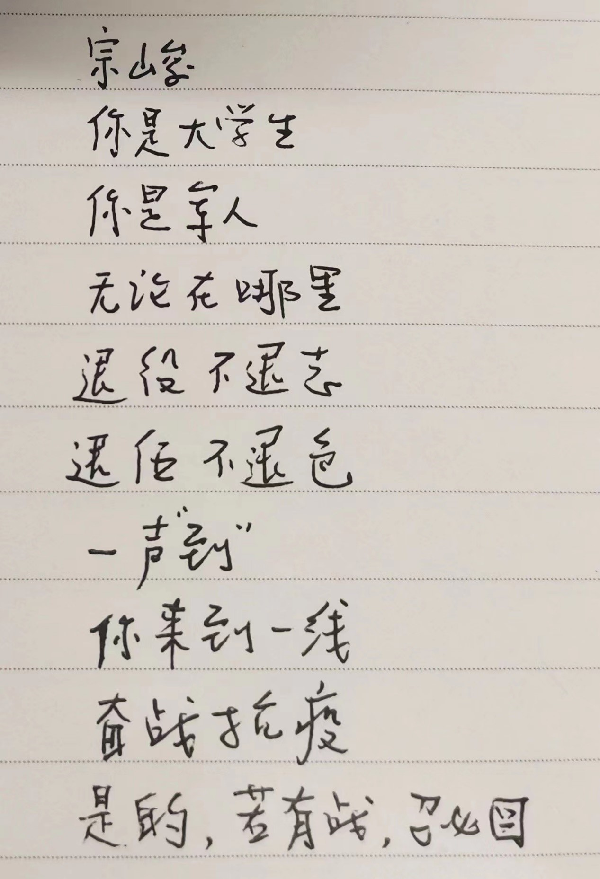 宗山峰
你是大学生
你是军人
无论在哪里
退役不退志
退伍不退色
一声“到”
你来到一线
奋战抗疫
是的,若有战,召必回